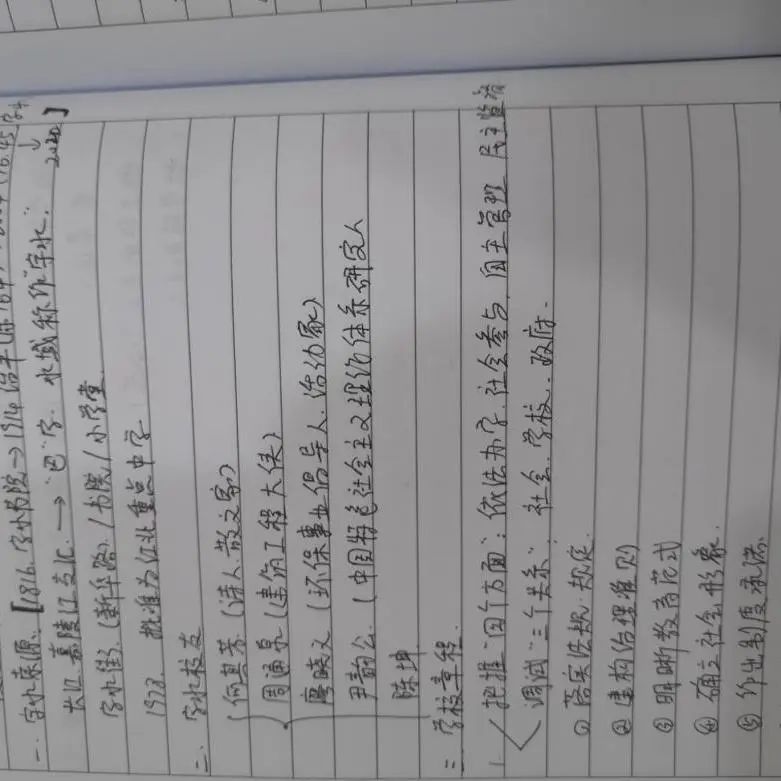 一. 字水来源: [1816. 字水书院→1914 治平
长江 嘉陵江交汇 → "巴"字. 水域称作字水. 2020]
字水街 (新华路) / 书院 / 小学堂
1978 批准为江北重点中学
二. 字水校友
何其芳 (诗人. 散文家)
周通泉 (建筑工程大侠)
廖晓义 (环保事业倡导人. 活动家)
尹韵公. (中国特色社会主义理论体系研究人
陈坤
三 学校章程.
1. 把握"四个方面": 依法办学. 社会参与. 自主管理 民主监督
调试"三个关系": 社会. 学校. 政府.
① 落实法规. 规定.
② 建构治理准则
③ 明晰教育范式
④ 确立社会形象.
⑤ 作出制度承诺.